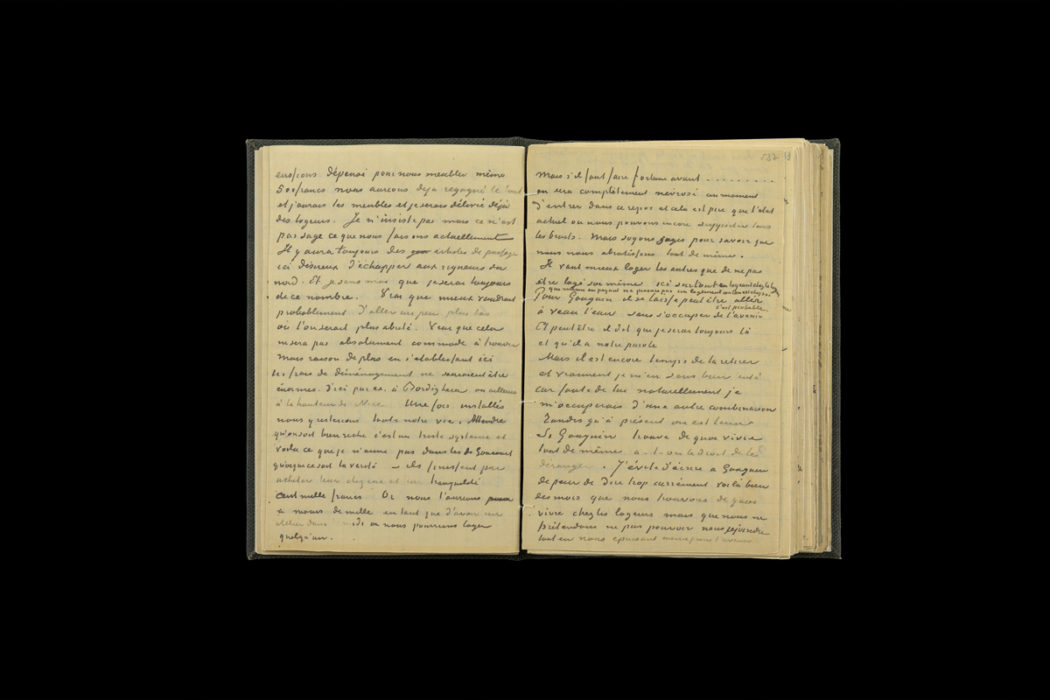 eussions dépensé pour nous meubler même
500 francs nous aurions déja regagné le tout
et j'aurais les meubles et je serais délivré déjà
des logeurs. Je n'insiste pas mais ce n'est
pas sage ce que nous faisons actuellement
Il y aura toujours des artistes de passage
ici désireux d'échapper aux rigueurs du
nord. Et je sens moi que je serai toujours
de ce nombre. Vrai que mieux vaudrait
probablement d'aller un peu plus bas
où l'on serait plus abrité. Vrai que cela
ne sera pas absolument commode à trouver
mais raison de plus en s'établissant ici
les frais de déménagement ne sauraient être
énormes. d'ici par ex. à Bordighera ou ailleurs
à la hauteur de Nice. Une fois installés
nous y resterions toute notre vie. Attendre
qu'on soit bien riche c'est un triste systeme et
voila ce que je n'aime pas dans les de Goncourt
quoique ce soit la verité – ils finissent par
acheter leur chez soi et leur tranquilité
cent mille francs Or nous l'aurions
à moins de mille en tant que d'avoir un
atelier dans midi ou nous pourrions loger
quelqu'un.
532 13
Mais s'il faut faire fortune avant . . . . . . . . . .
on sera complètement névrosé au moment
d'entrer dans ce repos et cela est pire que l'état
actuel ou nous pouvons encore supporter tous
les bruits. Mais soyons sages pour savoir que
nous nous abrutissons tout de même.
Il vaut mieux loger les autres que de ne pas
être logé soi même ici surtout en logeant chez le
qui même en payant ne procure pas un logement où l'on est chez soi.
Pour Gauguin il se laisse peut être aller
c'est probable
à veau l'eau sans s'occuper de l'avenir
Et peut être il dit que je serai toujours là
et qu'il a notre parole
Mais il est encore temps de la retirer
et vraiment je m'en sens bien tenté
car faute de lui naturellement je
m'occuperais d'une autre combinaison
Tandis qu'à présent on est tenu
Si Gauguin trouve de quoi vivre
tout de même a-t-on le droit de le
déranger. J'évite d'écrire à Gauguin
de peur de dire trop carrément voilà bien
des mois que nous trouvons de quoi
vivre chez les logeurs mais que nous ne
prétendons ne pas pouvoir nous rejoindre
tout en nous épuisant